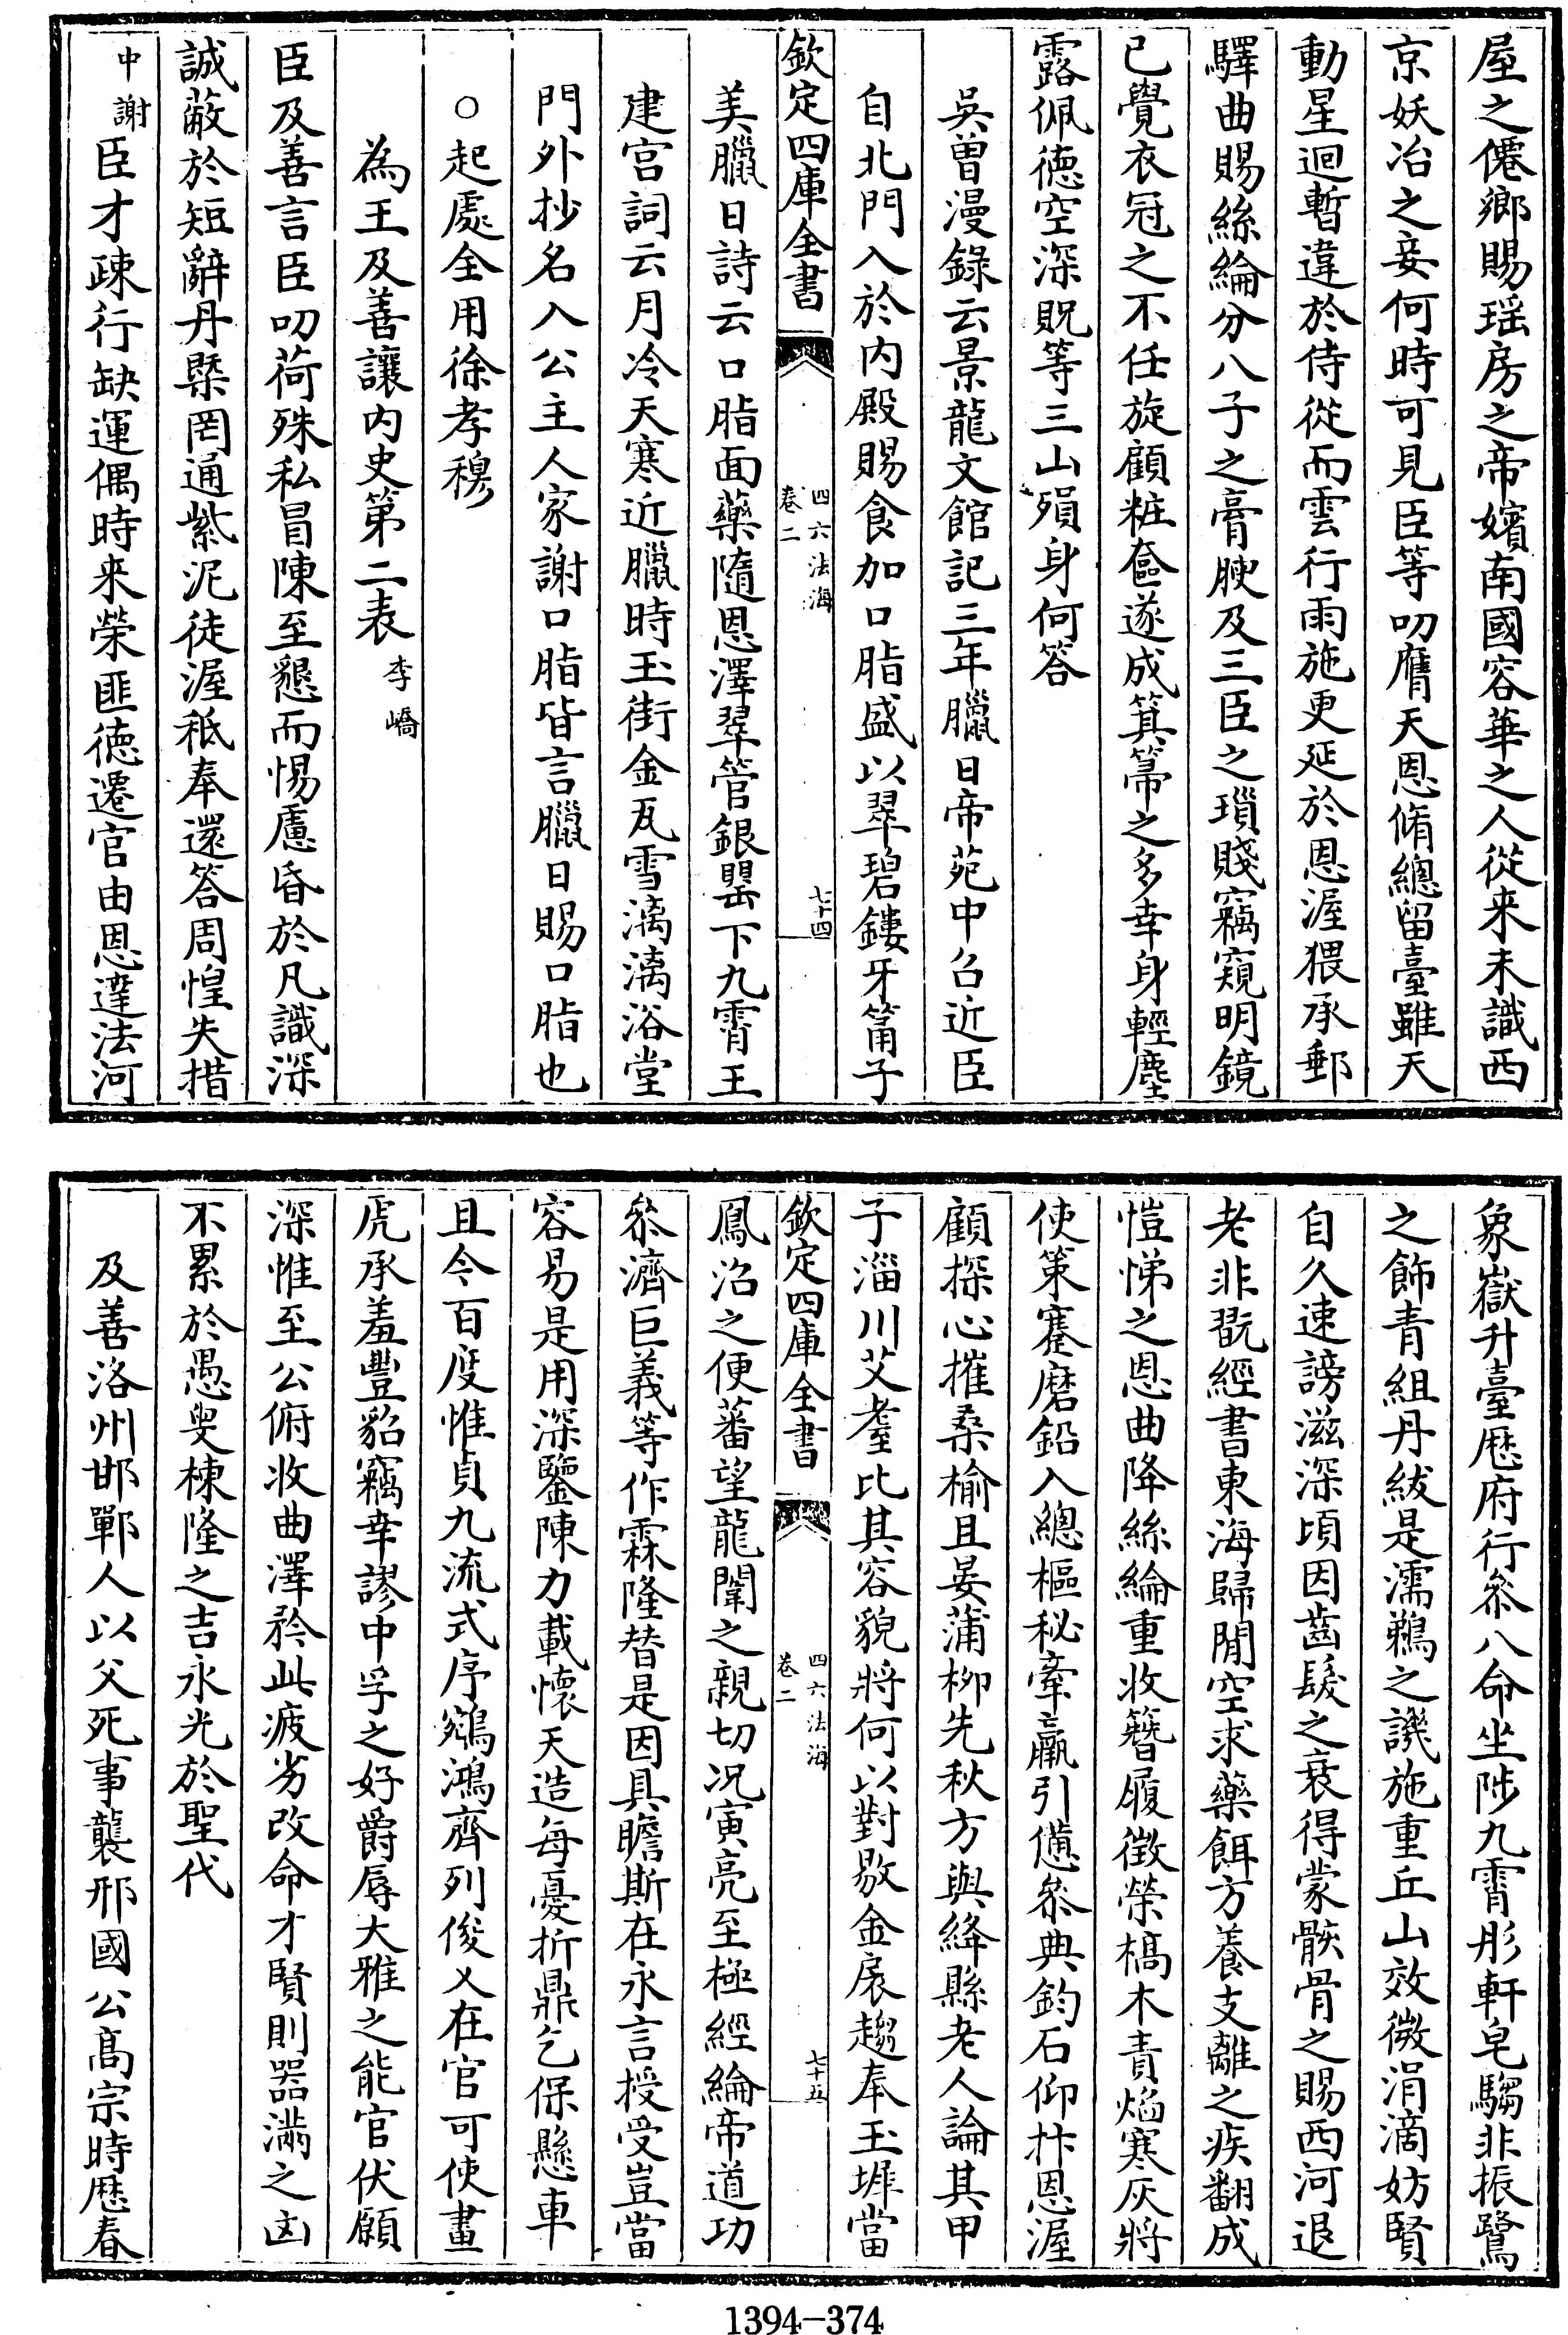 屋之僊鄉賜瑶房之帝嬪南國容華之人從来未識西
京妖冶之妾何時可見臣等叨膺天恩脩總留臺雖天
動星迴暫違於侍從而雲行雨施更延於恩渥猥承郵
驛曲賜絲綸分八子之膏腴及三臣之瑣賤竊窺明鏡
已覺衣冠之不任旋顧粧奩遂成箕箒之多幸身輕塵
露佩德空深貺等三山殞身何答
吳曽漫錄云景龍文館記三年臘日帝苑中召近臣
自北門入於内殿賜食加口脂盛以翠碧鏤牙筩子
欽定四庫全書
四六法海
卷二
七十四
美臘日詩云口脂面藥隨恩澤翠管銀罌下九霄王
建宫詞云月冷天寒近臘時玉街金瓦雪漓漓浴堂
門外抄名入公主人家謝口脂皆言臘日賜口脂也
○起處全用徐孝穆
為王及善讓内史第二表李嶠
臣及善言臣叨荷殊私冒陳至懇而惕慮昏於凡識深
誠蔽於短辭丹槩罔通紫泥徒渥秪奉還答周惶失措
中謝臣才疎行缺運偶時来榮匪徳遷官由恩達法河
象嶽升臺歴府行叅八命坐陟九霄彤軒皂騶非振鷺
之飾青組丹紱是濡鵜之譏施重丘山效微涓滴妨賢
自久速謗滋深頃因齒髮之衰得蒙骸骨之賜西河退
老非翫經書東海歸閒空求藥餌方養支離之疾翻成
愷悌之恩曲降絲綸重收簪履徴榮槁木責焔寒灰將
使策蹇磨鉛入總樞秘牽羸引憊叅典鈞石仰抃恩渥
顧探心摧桑榆且晏蒲柳先秋方與絳縣老人論其甲
子淄川艾耋比其容貌將何以對敭金扆趨奉玉墀當
欽定四庫全書
四六法海
卷二
七十五
鳳沼之便蕃望龍闈之親切况寅亮至極經綸帝道功
叅濟巨義等作霖隆替是因具瞻斯在永言授受豈當
容易是用深鑒陳力載懷天造每憂折鼎乞保懸車
且今百度惟貞九流式序鵷鴻齊列俊乂在官可使畫
虎承羞豐貂竊幸謬中孚之好爵辱大雅之能官伏願
深惟至公俯收曲澤矜此疲劣改命才賢則器滿之凶
不累於愚叟棟隆之吉永光於聖代
及善洛州邯鄲人以父死事襲邢國公髙宗時歴春
1394-374